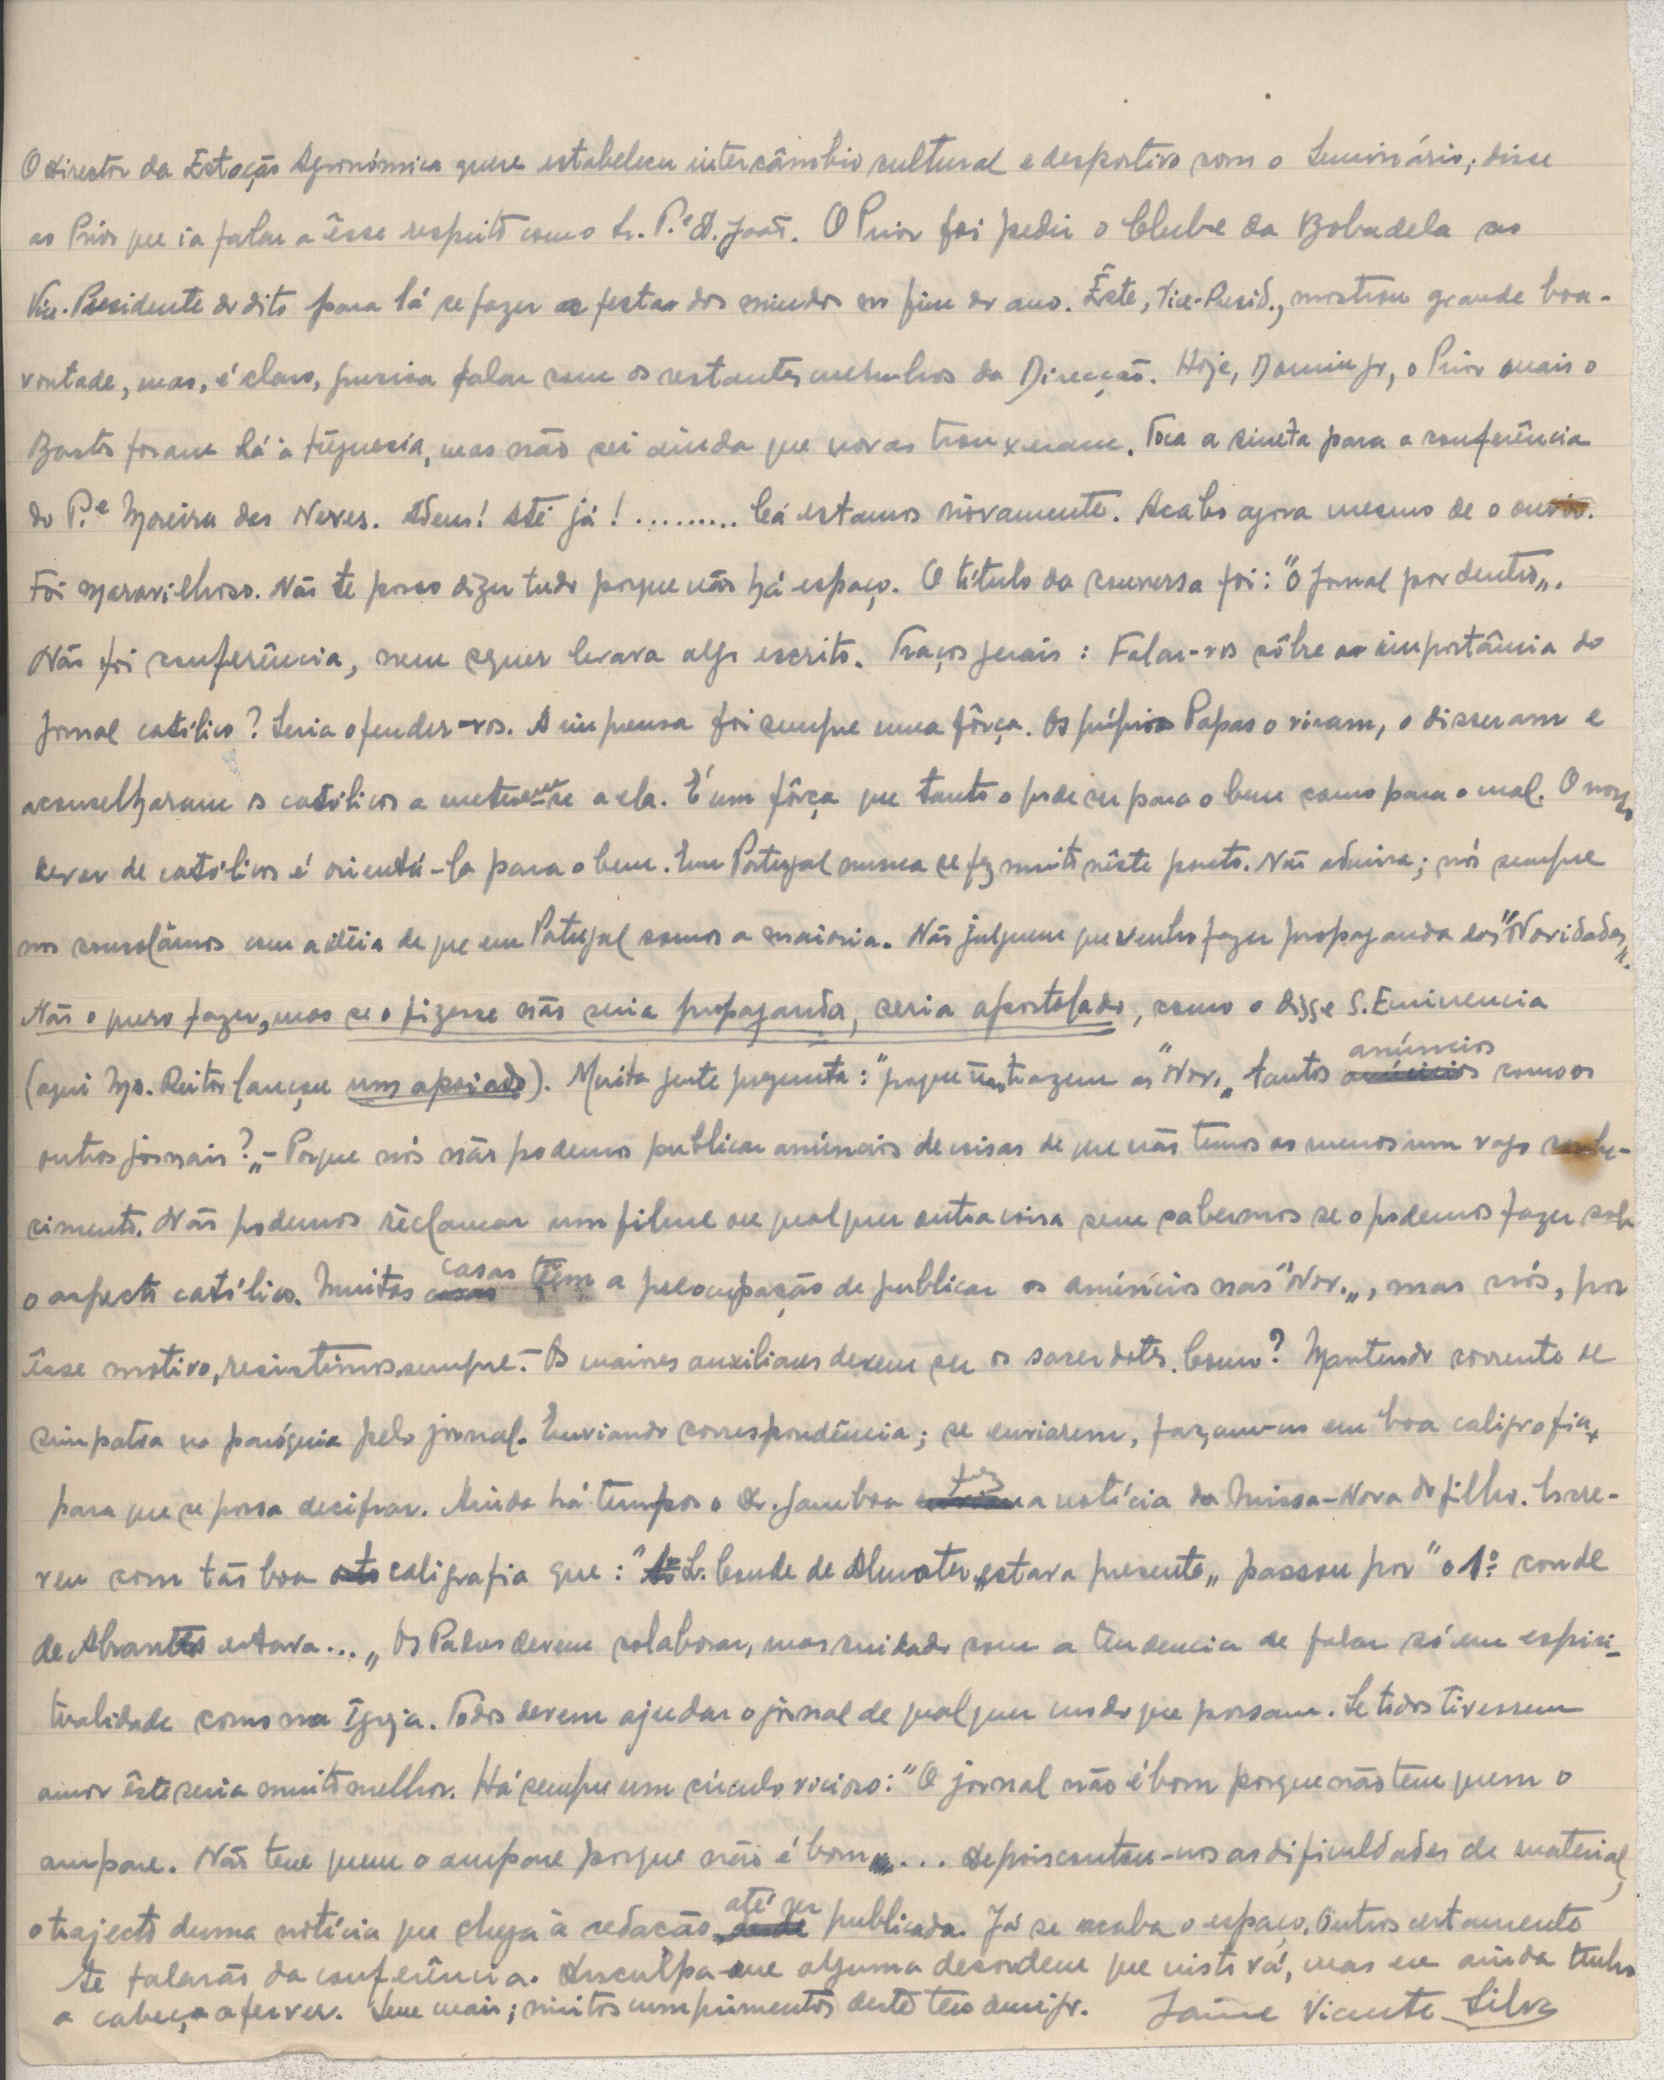 O director da Estação Agronómica quere estabelecer intercâmbio cultural e desportivo com o Seminário; disse
ao Prior que ia falar a êsse respeito com o Sr. P.e D. João. O Prior foi pedir o Clube da Bobadela ao
Vice-Presidente do dito para lá se fazer as festas dos miudos no fim do ano. Êste, Vice-Presid., mostrou grande boa-
vontade, mas, é claro, precisa falar com os restantes membros da Direcção. Hoje, Domingo, o Prior mais o
Bastos foram lá à freguesia, mas não sei ainda que novas trouxeram. Toca a sineta para a conferência
do P.e Moreira das Neves. Adeus! Até já! ......... Cá estamos nòvamente. Acabo agora mesmo de o ouvir.
Foi maravilhoso. Não te posso dizer tudo porque não há espaço. O título da conversa foi: "O Jornal por dentro„.
Não foi conferência, nem sequer levava algo escrito. Traços gerais: Falar-vos sôbre a importância do
Jornal católico? Seria ofender-vos. A imprensa foi sempre uma fôrça. Os próprios Papas o viram, o disseram e
aconselharam os católicos a meterem-se a ela. É um fôrça que tanto o pode ser para o bem como para o mal. O nosso
dever de católicos é orientá-la para o bem. Em Portugal nunca se fez muito nêste ponto. Não admira; nós sempre
nos consolámos com a idéia de que em Portugal somos a maioria. Não julguem que venho fazer propaganda das "Novidades„.
Não o quero fazer, mas se o fizesse não seria propaganda, seria apostolado, como o disse S. Eminencia
(aqui Mo. Reitor lançou um apoiado). Muita gente pregunta: "porque não trazem as "Nov.„ tantos anúncios como os
outros jornais?„ - Porque nós não podemos publicar anúncios de coisas de que não temos ao menos um vago conhe-
cimento. Não podemos rèclamar um filme ou qualquer outra coisa sem sabermos se o podemos fazer sob
o aspecto católico. Muitas casas têm a preocupação de publicar os anúncios nas "Nov.„, mas nós, por
êsse motivo, resistimos sempre. - Os maiores auxiliares devem ser os sacerdotes. Como? Mantendo corrente de
simpatia na paróquia pelo jornal. Enviando correspondência; se enviarem, façam-no em boa caligrafia,
para que se possa decifrar. Ainda há tempos o Sr. Gamboa fez a notícia da Missa-Nova do filho. Escre-
veu com tão boa caligrafia que: "O Sr. Conde de Almoster estava presente„ passou por "o 1º conde
de Abrantes estava...„ Os Padres devem colaborar, mas cuidado com a tendencia de falar só em espiri-
tualidade como na Igreja. Todos devem ajudar o jornal de qualquer modo que possam. Se todos tivessem
amor êste seria muito melhor. Há sempre um círculo vicioso: "O jornal não é bom porque não tem quem o
ampare. Não tem quem o ampare porque não é bom„... Depois contou-nos as dificuldades de material,
o trajecto duma notícia que chega à redacção até ser publicada. Já se acaba o espaço. Outros certamente
te falarão da conferência. Desculpa-me alguma desordem que nisto vá, mas eu ainda tenho
a cabeça a ferver. Sem mais; muitos cumprimentos dêste teu amigo. Jaime Vicente Silva